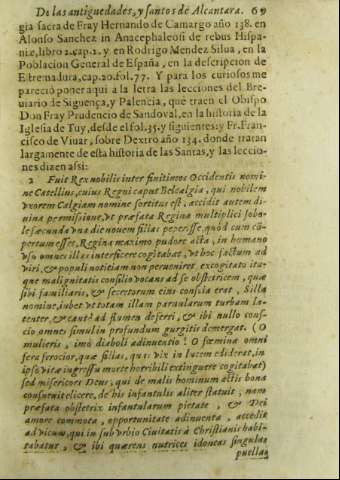 De las antiguedades, y santos de Alcantara. 69
gia sacra de Fray Hernando de Camargo año 138. en
Alonso Sanchez in Anacephaleosi de rebus Hispa-
niæ, libro 2. cap. 2. y en Rodrigo Mendez Silua, en la
Poblacion General de España, en la descripcion de
Estremadura, cap. 20. fol. 77. Y para los curiosos me
pareciò poner aqui a la letra las lecciones del Bre-
uiario de Siguença, y Palencia, que traen el Obispo
Don Fray Prudencio de Sandoval, en la historia de la
Iglesia de Tuy, desde el fol. 35. y siguientes: y Fr. Fran-
cisco de Viuar, sobre Dextro año 134. donde tratan
largamente de esta historia de las Santas, y las leccio-
nes dizen assi:
2 Fuit Rex nobilis inter finitimos Occidentis nomi-
ne Catellius, cuius Regni caput Belcalgia, qui nobilem
vxorem Calgiam nomine sortitus est, accidit autem di-
uina permissione, vt præfata Regina multiplici sobo-
le fæcunda vna die nouem filias peperisse, quòd cum cõ-
pertum esset, Regina maximo pudore acta, in homano
vso omnes illas interficere cogitabat, vt hoc factum ad
viri, & populi notitiam non perueniret. excogitato ita-
que malignitatis consilio vocans ad se obstetricem, quæ
sibi familiaris, & secretorum eius conscia erat, Silla
nomine, iubet vt totam illam paruularum turbam la-
tenter, & cautè ad flumen deferri, & ibi nullo cons-
cio omnes simul in profundum gurgitis demergat. (O
mulieris, imò diaboli adinuentio! O fæmina omni
fera ferocior, quæ filias, quas vix in lucem ediderat, in
ipso vitæ ingressu morte horribili extinguere cogitabat)
sed misericors Deus, qui de malis hominum actis bona
consueuit elicere, de his infantulis aliter statuit, nam
præfata obstetrix infantularum pietate, & Dei
amore commota, opportunitate adinuenta, accedit
ad vicum, qui in suburbio Ciuitatis à Christianis habi-
tabatur, & ibi quærens nutrices idoneas singulas
puellas